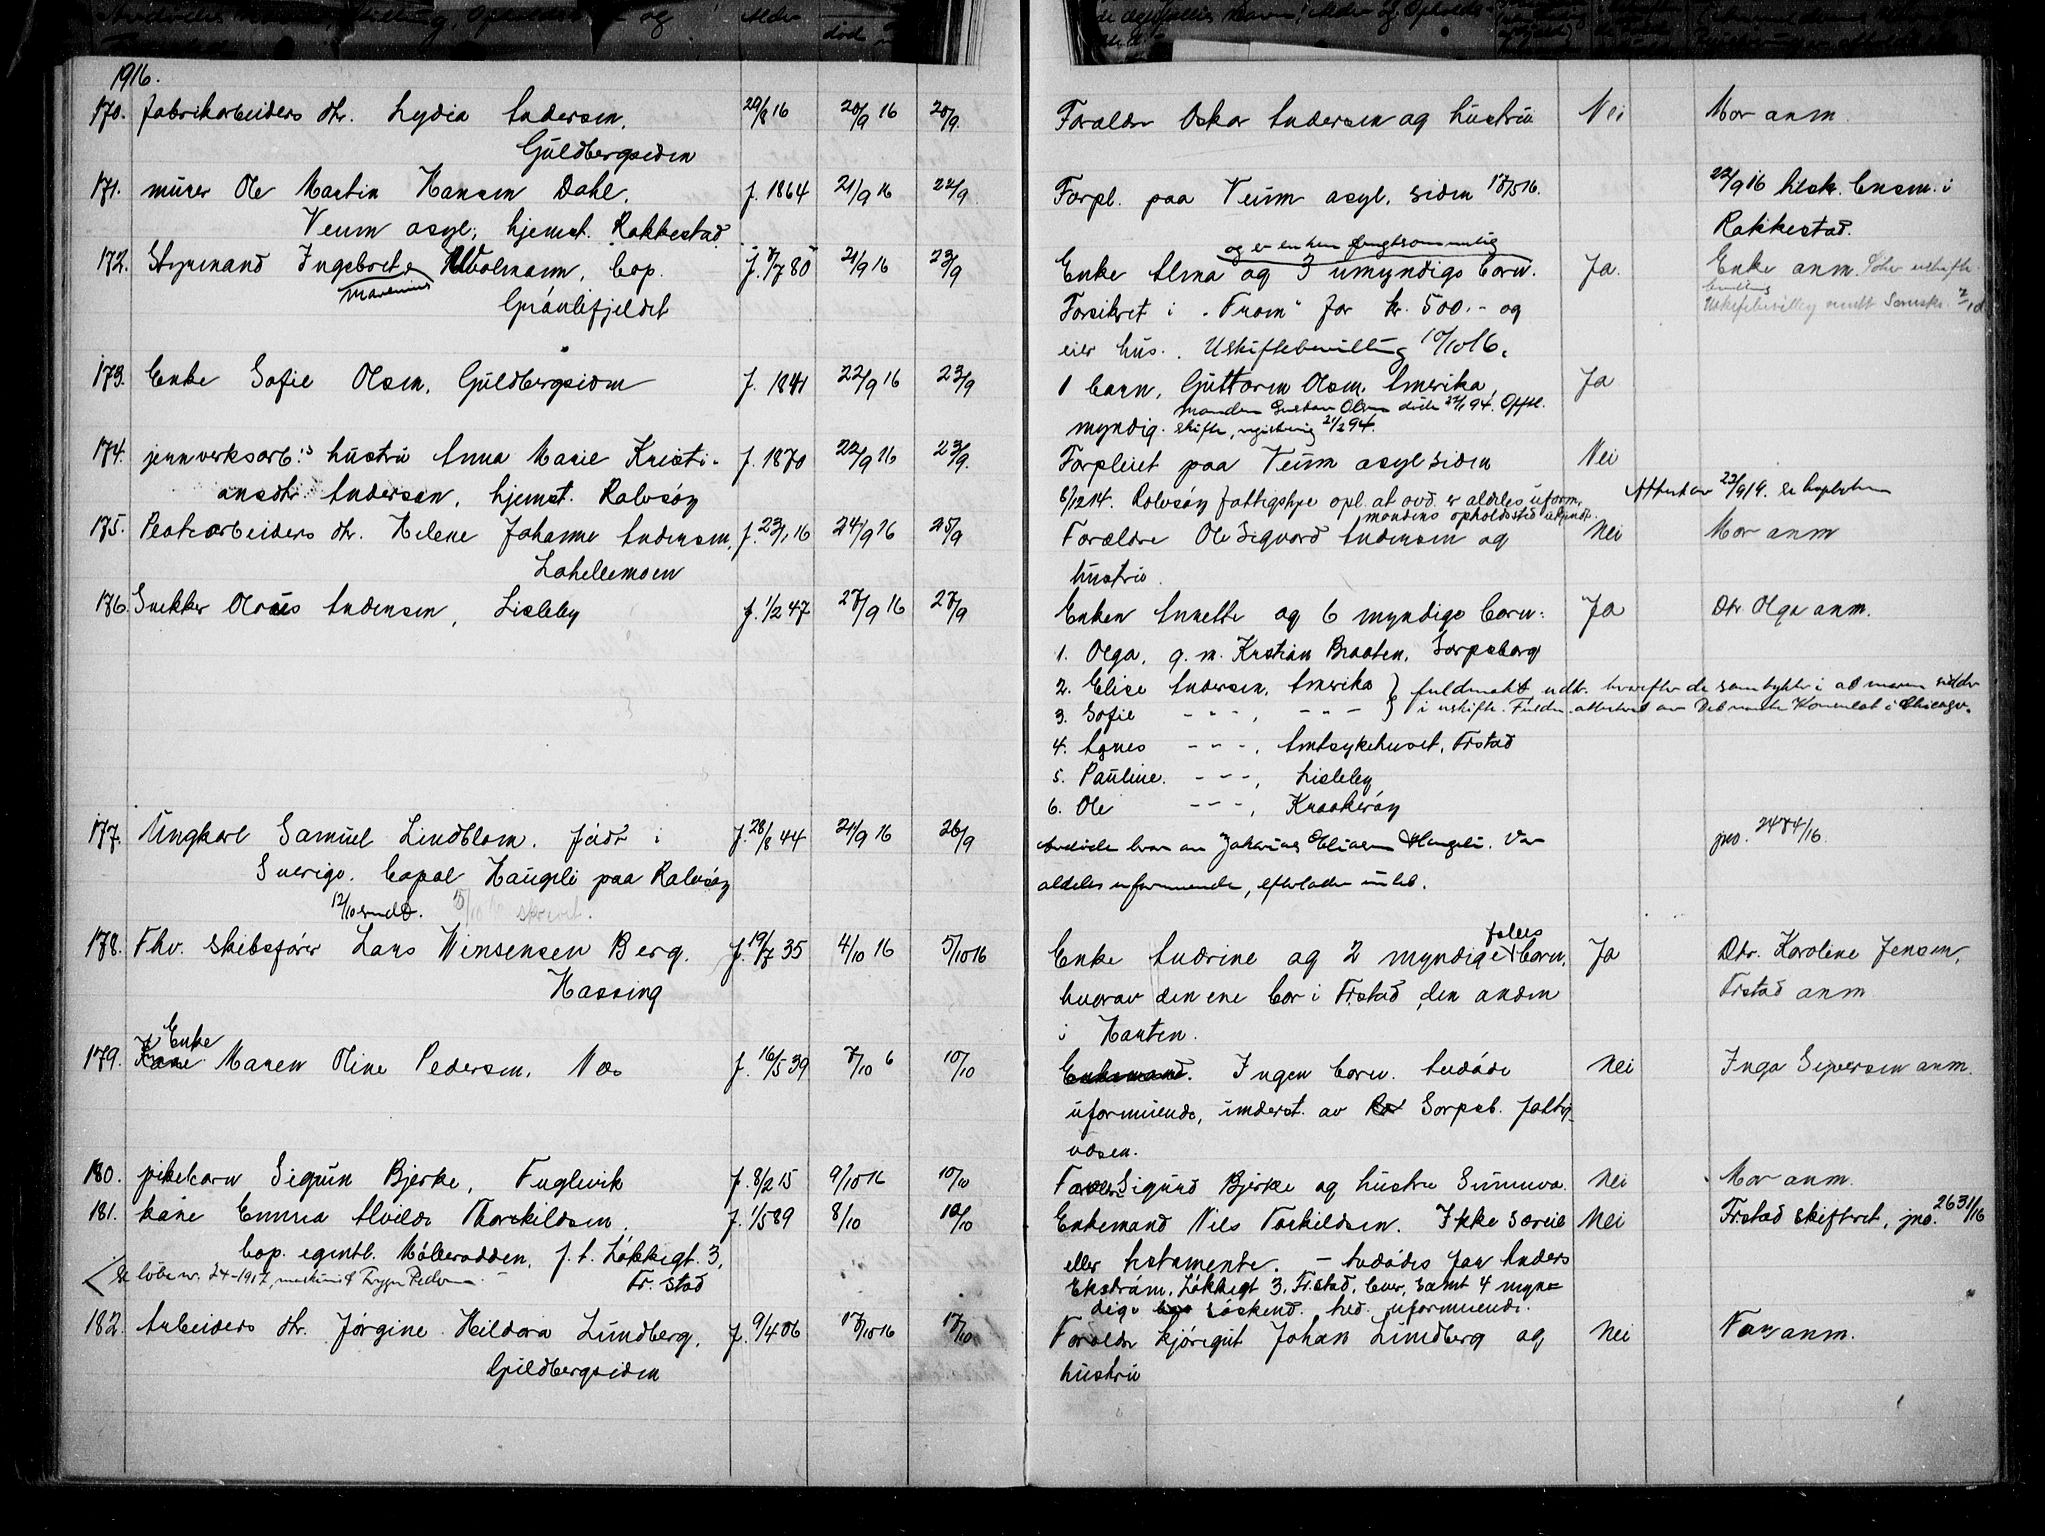 1916.
170. Fabrikarbeiders dtr. Lydia Andersen, 29/8 16 20/9 16 20/9. Forældre Oskar Andersen og hustru Nei Mor anm.
Guldbergsiden
171. murer Ole Martin Hansen Dahl. f. 1864 21/9 16 22/9. Forpl. paa Veum asyl. siden 22/9 16 lensm. i
Veum asyl, hjemst. Rakkestad Rakkestad.
og er enken frugtsommelig
172. Styrmand Ingebret Wolmann, bop. 21/9 16 23/9 Enke Alma og 3 umyndige barn. Ja. Enke anm.
Marenius
Grønlifjeldet Forsikret i "Fram" for kr. 500.- og
eier hus. Uskiftebevilling 10/10 16.
173. Enke Sofie Olsen, Guldbergsiden f. 1841 22/9 16 23/9 1 barn, Guttorm Olsen, Amerika, Ja
manden Gustav Olsen døde 94. Offtl.
myndig. skifte, 21/2 94.
174. jernverksarb:s hustru Anna Marie Kristi- f. 1870 22/9 16 23/9. Forpleiet paa Veum asyl siden Nei
ansdtr. Andersen, hjemst. Rolvsøy 8/12 14. Rolvsøy fattigstyre opl. at avd. er aldeles uform,
mandens opholdssted ukjendt.
175. dtr. Helene Johanne Andersen, f. 23/1 16 24/9 16 25/9 Forældre Ole Sigvard Andersen og Nei Mor anm
Lahellemoen hustru.
176. Snekker Olaus Andersen, Lisleby f. 1/2 47 27/9 16 27/9 Enken Annette og 6 myndige barn: Ja Dtr Olga anm.
1. Olga, g. m. Kristian Braaten, Sarpsborg
2. Elise Andersen, Amerika } fuldmakt utst. hvorefter de samtykker i at moren sidder
3. Sofie - - - , - - - } i uskifte. Fuldm. attestert av Det norske Konsulat i Chicago.
4. Agnes - - - , Amtsykehuset, Fr.stad
5. Pauline. - - - , Lisleby
6. Ole - - - , Kraakerøy
177. Ungkarl Samuel Lindblom. født i f. 28/8 44 21/9 16 26/9 Avdøde bor Elias Haugeli. Var jno. 2474/16.
Sverige. bopæl Haugeli paa Rolvsøy aldeles uformuende, efterlader intet.
12/10 sendt. skrevet.
178. Fhv. skibsfører Lars Wensensen Berg. f. 19/7 35 4/10 16 5/10 16 Enke Andrine og 2 myndige fælles barn, Ja Dtr. Karoline Jensen,
Hassing hvorav den ene bor i Fr.stad, den anden Fr.stad anm
i Horten.
Enke
179. Kone Maren Oline Pedersen, Næs f. 16/5 39 7/10 6 10/10 Enkemand. Ingen barn. Avdøde Nei Inga Syversen anm.
uformuende, underst. av Sarpsb. fattig-
væsen.
180. pikebarn Sigrun Bjerke, Fuglevik f. 8/2 15 9/10 16 10/10 Sigurd Bjerke og hustru Sunneva. Nei Mor anm.
181. kone Emma Alvilde Thorkildsen. f. 1/5 89 8/10 12/10 Enkemand Nils Torkildsen. Ikke særeie Nei Fr.stad skifteret, jno. 2631/16
bop. egentl. Møllerodden, f. t. Løkkegt. 3, eller testamente. - Avdødes far Anders
Se løbenr. 24-1917, maskinist Pedersen Fr.stad Ekstrøm, Løkkegt 3, Fr.stad, lever, samt 4 myn-
dige søskend. hvd. uformuende.
182. Arbeiders dtr. Jørgine Hildora Lundberg, f. 9/4 06 17/10 16 17/10 Forældre kjøregut Johan Lundberg og Nei Far anm.
Guldbergsiden hustru